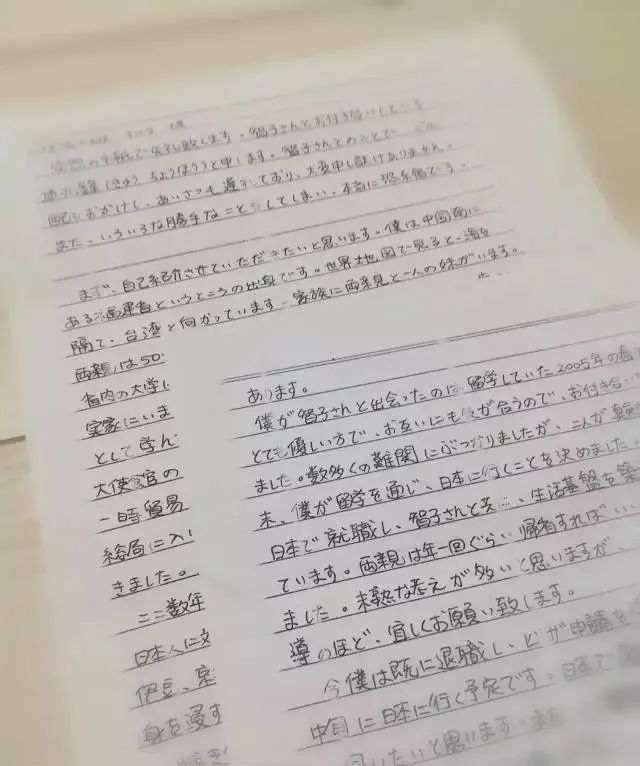 突然の手紙で失礼致します。智子さんとお付き合いしている
(きゅう ちょうほう)と申します。智子さんとのことで
おかけし、あいさつも遅れており、大変申し訳ありません。
また、いろいろな勝手なことをしてしまい、本当に恐縮です。
まず、自己紹介させていただきたいと思います。僕は中国南に
ある福建省というところの出身です。世界地図で見ると、海を
隔て、台湾と向かっています。家族に両親と一人の妹がいます。
両親は50
省内の大学に
実家にいま
として学ん
大使館の
一時貿易
総局に入
きました。
ここ数年
日本人に
伊豆、
身を浸す
あります。
僕が智子さんと出会ったのは留学していた2005年の春
とても優しい方で、お互いにも気が合うので、お付き合い
ました。数多くの難関にぶつかりましたが、二人が
末、僕が留学を通じ、日本に行くことを決めました
日本で就職し、智子さんと共、生活基盤を築
ています。両親は年一回ぐらい帰省すればいい
ました。未熟な考えが多いと思いますが、
導のほど、宜しくお願い致します。
今僕は既に退職し、ビザ申請を
中旬に日本に行く予定です。日本で
いたいと思います。また